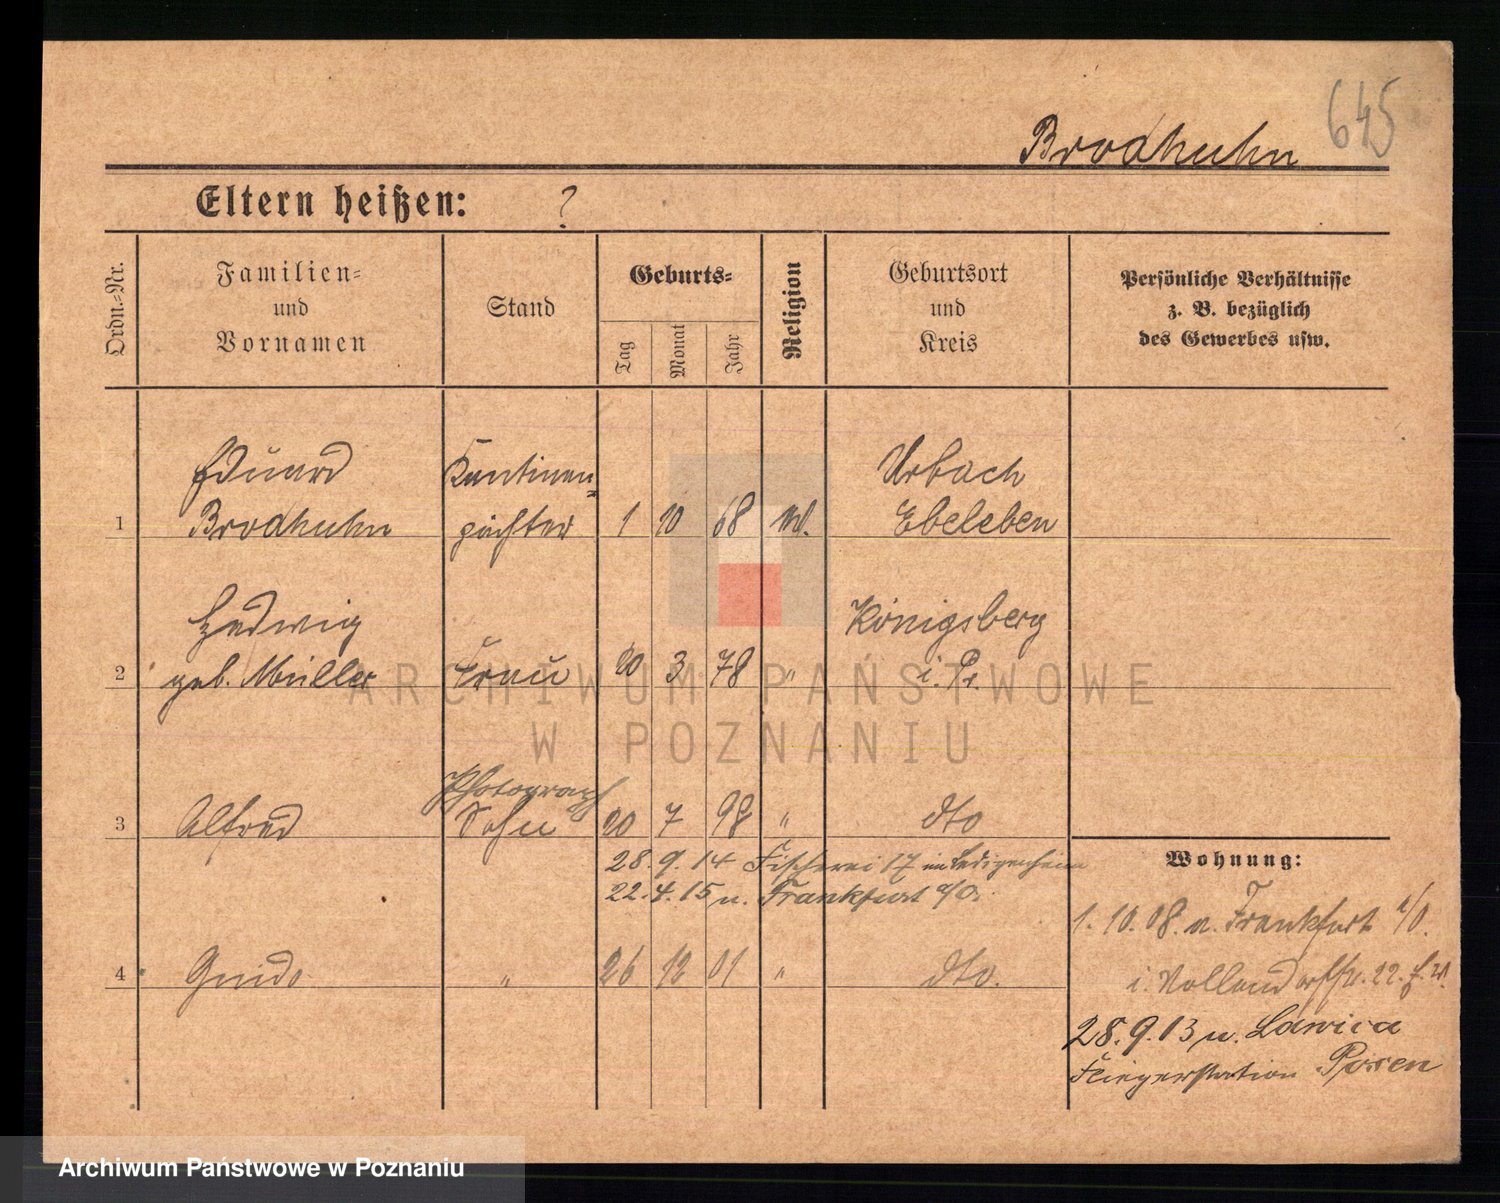 645
Brodhuhn
Eltern heißen: ?
Ordn.=Nr.
Familien=
und
Vornamen
Stand
Geburts=
Tag
Monat
Jahr
Religion
Geburtsort
und
Kreis
Persönliche Verhältnisse
z. B. bezüglich
des Gewerbes usw.
Eduard
Kantinen=
Urbach
1 Brodhuhn pächter 1 10 68 Ebeleben
Hedwig
Königsberg
2 geb. Müller Frau 20 3 78 " i. Pr.
Photograph
3 Alfred Sohn 20 7 98 " dto
28. 9. 14 Fischerei 17 im Ledigenheim
22. 4. 15 n. Frankfurt a/O.
4 Guido " 26 12 01 " dto.
Wohnung:
1. 10. 08. n. Frankfurt a/O.
28. 9. 13 n. Lawica
Fliegerstation Posen
ARCHIWUM PAŃSTWOWE
W POZNANIU
Archiwum Państwowe w Poznaniu